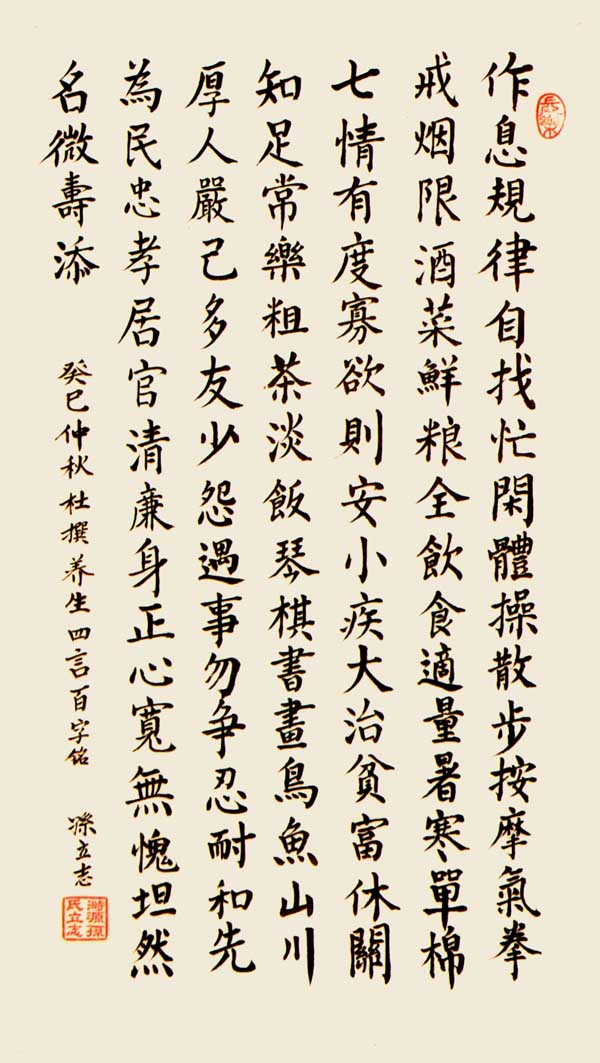 長樂
作息規律自找忙閑體操散步按摩氣拳
戒烟限酒菜鮮粮全飲食適量暑寒單棉
七情有度寡欲則安小疾大治貧富休關
知足常樂粗茶淡飯琴棋書畫鳥魚山川
厚人嚴己多友少怨遇事勿争忍耐和先
為民忠孝居官清廉身正心寬無愧坦然
名微壽添
癸巳仲秋杜撰养生四言百字銘 孫立志
源孫
氏立志